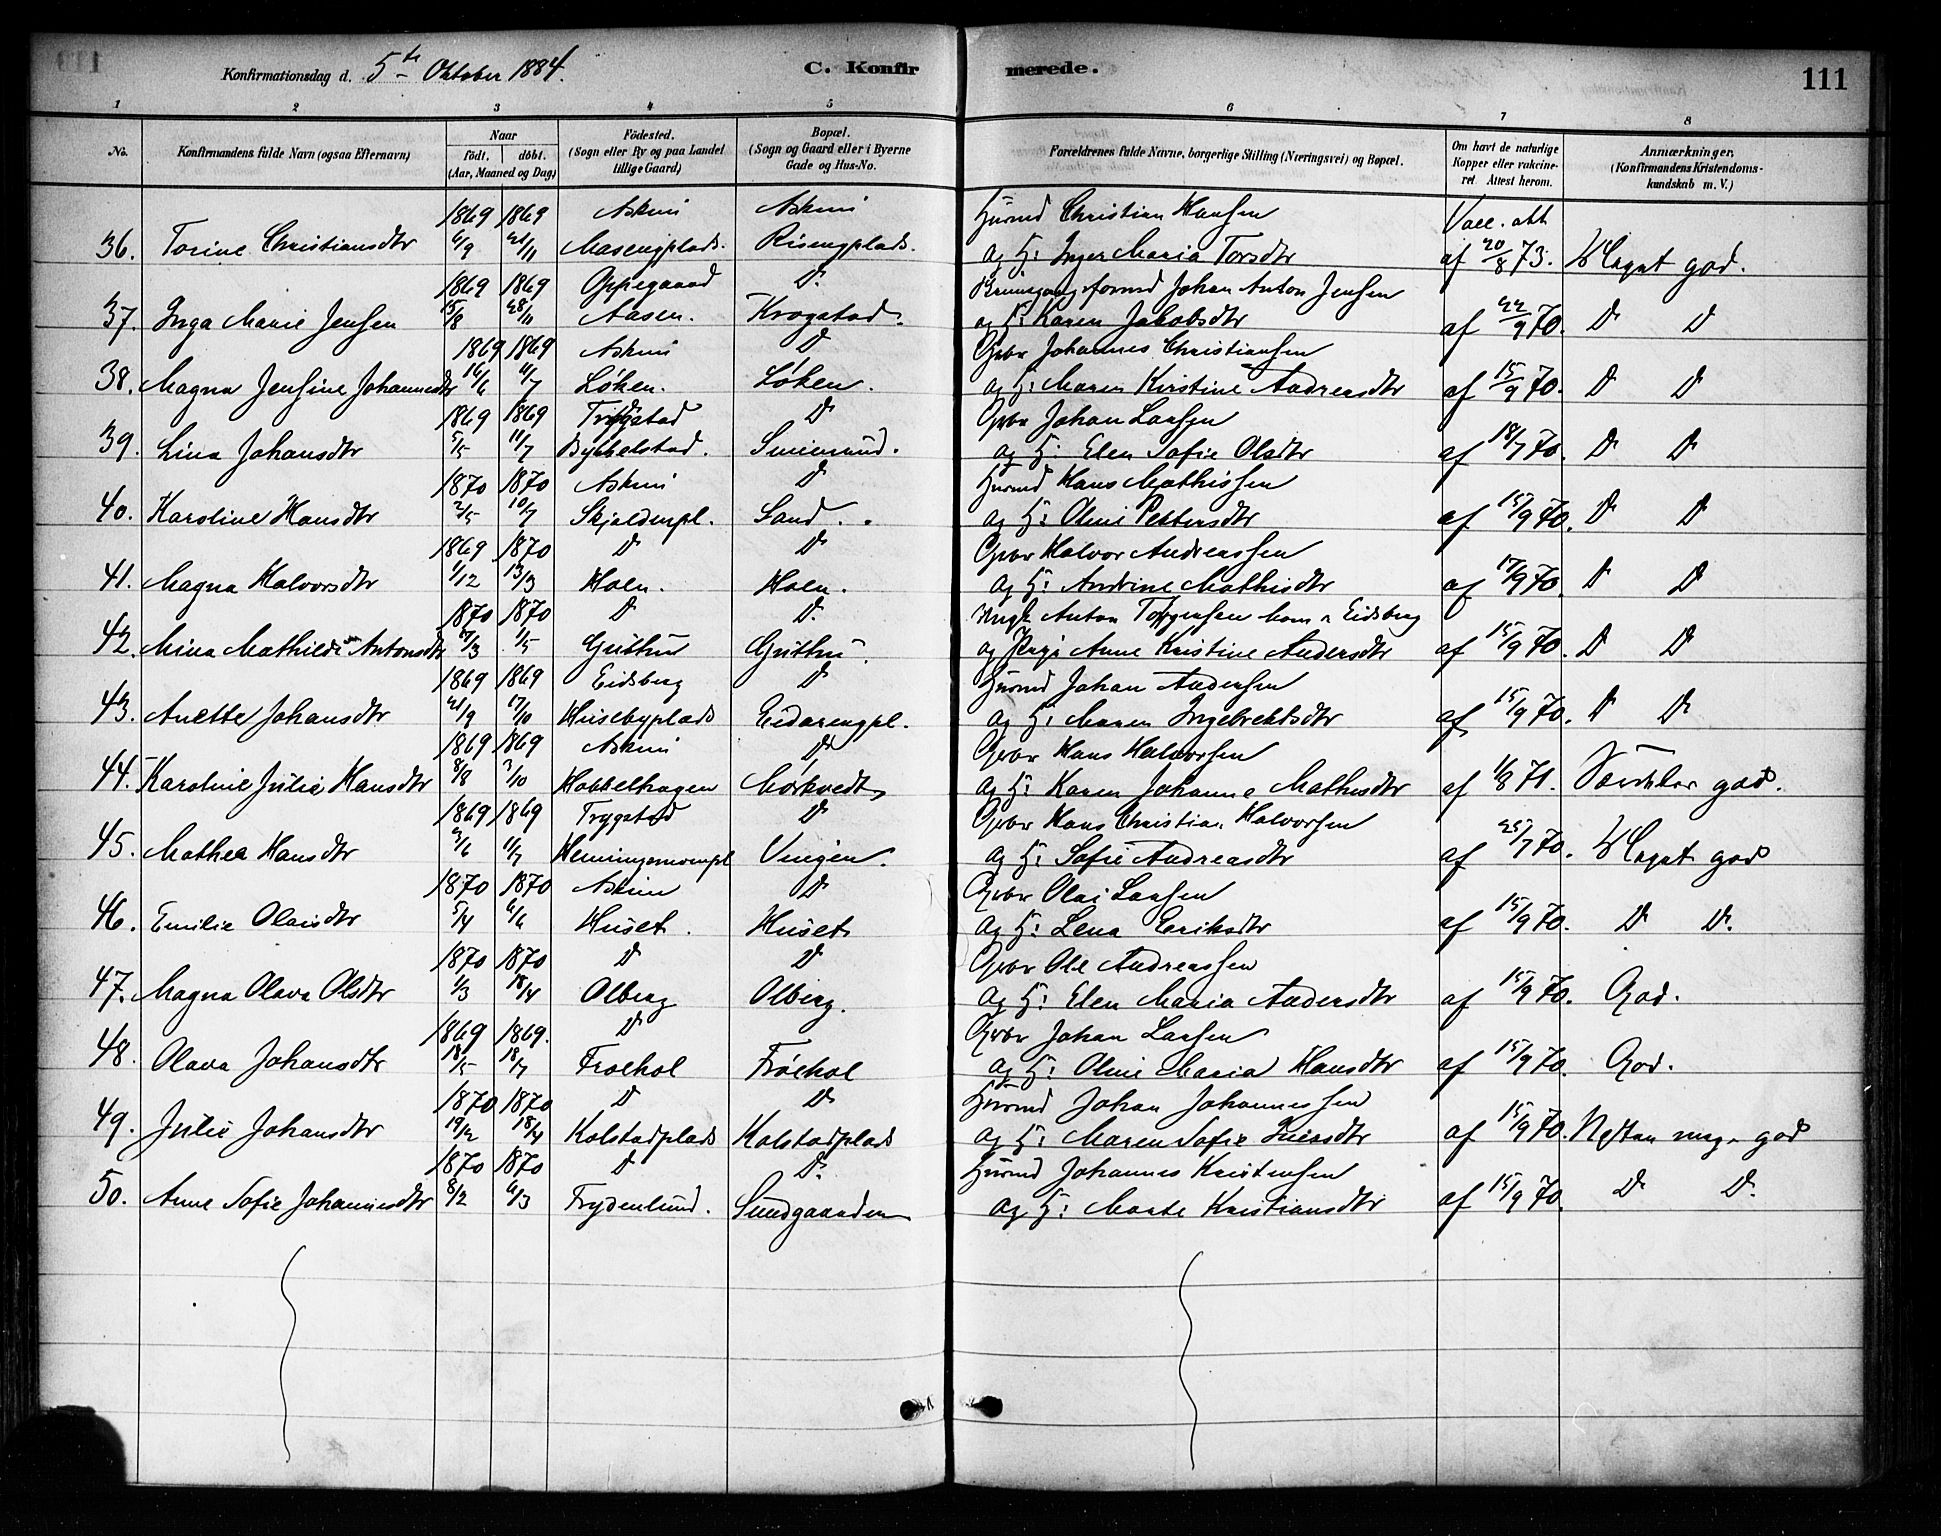 Konfirmationsdag d. 5te Oktober 1884. C. Konfirmerede. 111
1 2 3 4 5 6 7 8
No. Konfirmandens fulde Navn (ogsaa Efternavn) Naar födt. döbt. (Aar, Maaned og Dag) Födested. (Sogn eller By og paa Landet tillige Gaard) Bopæl. (Sogn og Gaard eller i Byerne Gade og Hus-No. Forældrenes fulde Navne, borgerlige Stilling (Næringsvei) og Bopæl. Om havt de naturlige Kopper eller vakcineret. Attest herom. Anmærkninger, (Konfirmandens Kristendomskundskab m. V.)
1869 1869 Askim Askim Husmd Christian Hansen Vacc. att
36. Torine Christiansdtr 6/9 21/11 Masengplads. Risengplads. og H: Inger Maria Torsdtr af 20/8 73. Meget god.
1869 1869 Oppegaard D. Johan Anton Jensen
37. Inga Marie Jensen 15/8 28/11 Aasen. Krogstad. og H: Karen Jakobsdtr af 22/9 70. D D
1869 1869 Askim D Gbr Johannes Christiansen
38. Magna Jensine Johannesdtr 16/6 11/7 Løken. Løken. og H: Maren Kirstine Andreasdtr af 15/9 70. D D
1869 1869 Trygstad D Gbr Johan Larsen
39. Lina Johansdtr 5/5 11/7 og H: Elen Sofie Olsdtr af 18/7 70. D D
1870 1870 Askim D Husmd Hans Mathissen
40. Karoline Hansdtr 2/5 10/7 Skjoldenpl. Sand. og H: Oline Pettersdtr af 15/9 70. D D
1869 1870 D D Gbr Halvor Andreassen
41. Magna Halvorsdtr 1/12 13/3 Holen. Holen. og H: Andrine Mathisdtr af 17/9 70. D D
1870 1870 D D. Ungk Anton Torgersen Eidsberg
42. Mina Mathilde Antonsdtr 1/5 og Pige Anne Kristine Andersdtr af 15/9 70. D D
1869 1869 Eidsberg D Husmd Johan Andersen
43. Anette Johansdtr 21/9 17/10 Husebyplads og H: Maren Ingebrektsdtr af 15/9 70. D D
1869 1869 Askim D Gbr Hans Halvorsen
44. Karoline Julie Hansdtr 8/8 3/10 Habbelhagen Mørkvedt og H: Karen Johanne Mathisdtr af 1/8 71. god.
1869 1869 Trygstad D Gbr Hans Christian Halvorsen
45. Mathea Hansdtr 11/7 Vingen. og H: Sofie Andreasdtr af 25/7 70. Meget god
1870 1870 Askim D Gbr Olai Larsen
46. Emilie Olaisdtr 5/4 6/6 Huset. Huset og H: Lena Eriksdtr af 15/9 70. D D.
1870 1870 D D Gbr Ole Andreassen
47. Magna Olava Olsdtr 1/3 18/4 Olberg Olberg. og H: Elen Maria Andersdtr af 15/9 70. God.
1869 1869. D Gbr Johan Larsen
48. Olava Johansdtr 18/5 18/7 Froehol Frøehol og H: Oline Maria Hansdtr af 15/9 70. God.
1870 1870 D D Husmd Johan Johannessen
49. Julie Johansdtr 19/2 18/4 Kolstadplads Kolstadplads og H: Maren Sofie af 15/9 70. Næsten meg. god
1870 1870 D D. Husmd Johannes Kristensen
50. Anne Sofie Johannesdtr 8/2 6/3 Frydenlund. Sundgaarden og H: Marte Kristiansdtr af 15/9 70. D D.